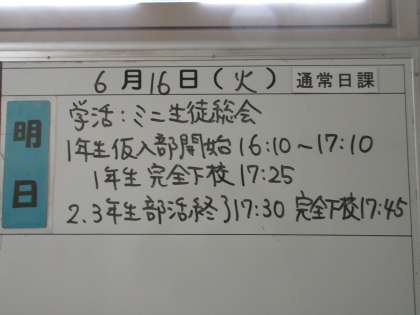 6月16日(火) 通常日課
明日
学活:ミニ生徒総会
1年生仮入部開始16:10～17:10
1年生 完全下校 17:25
2.3年生部活終了17:30 完全下校17:45